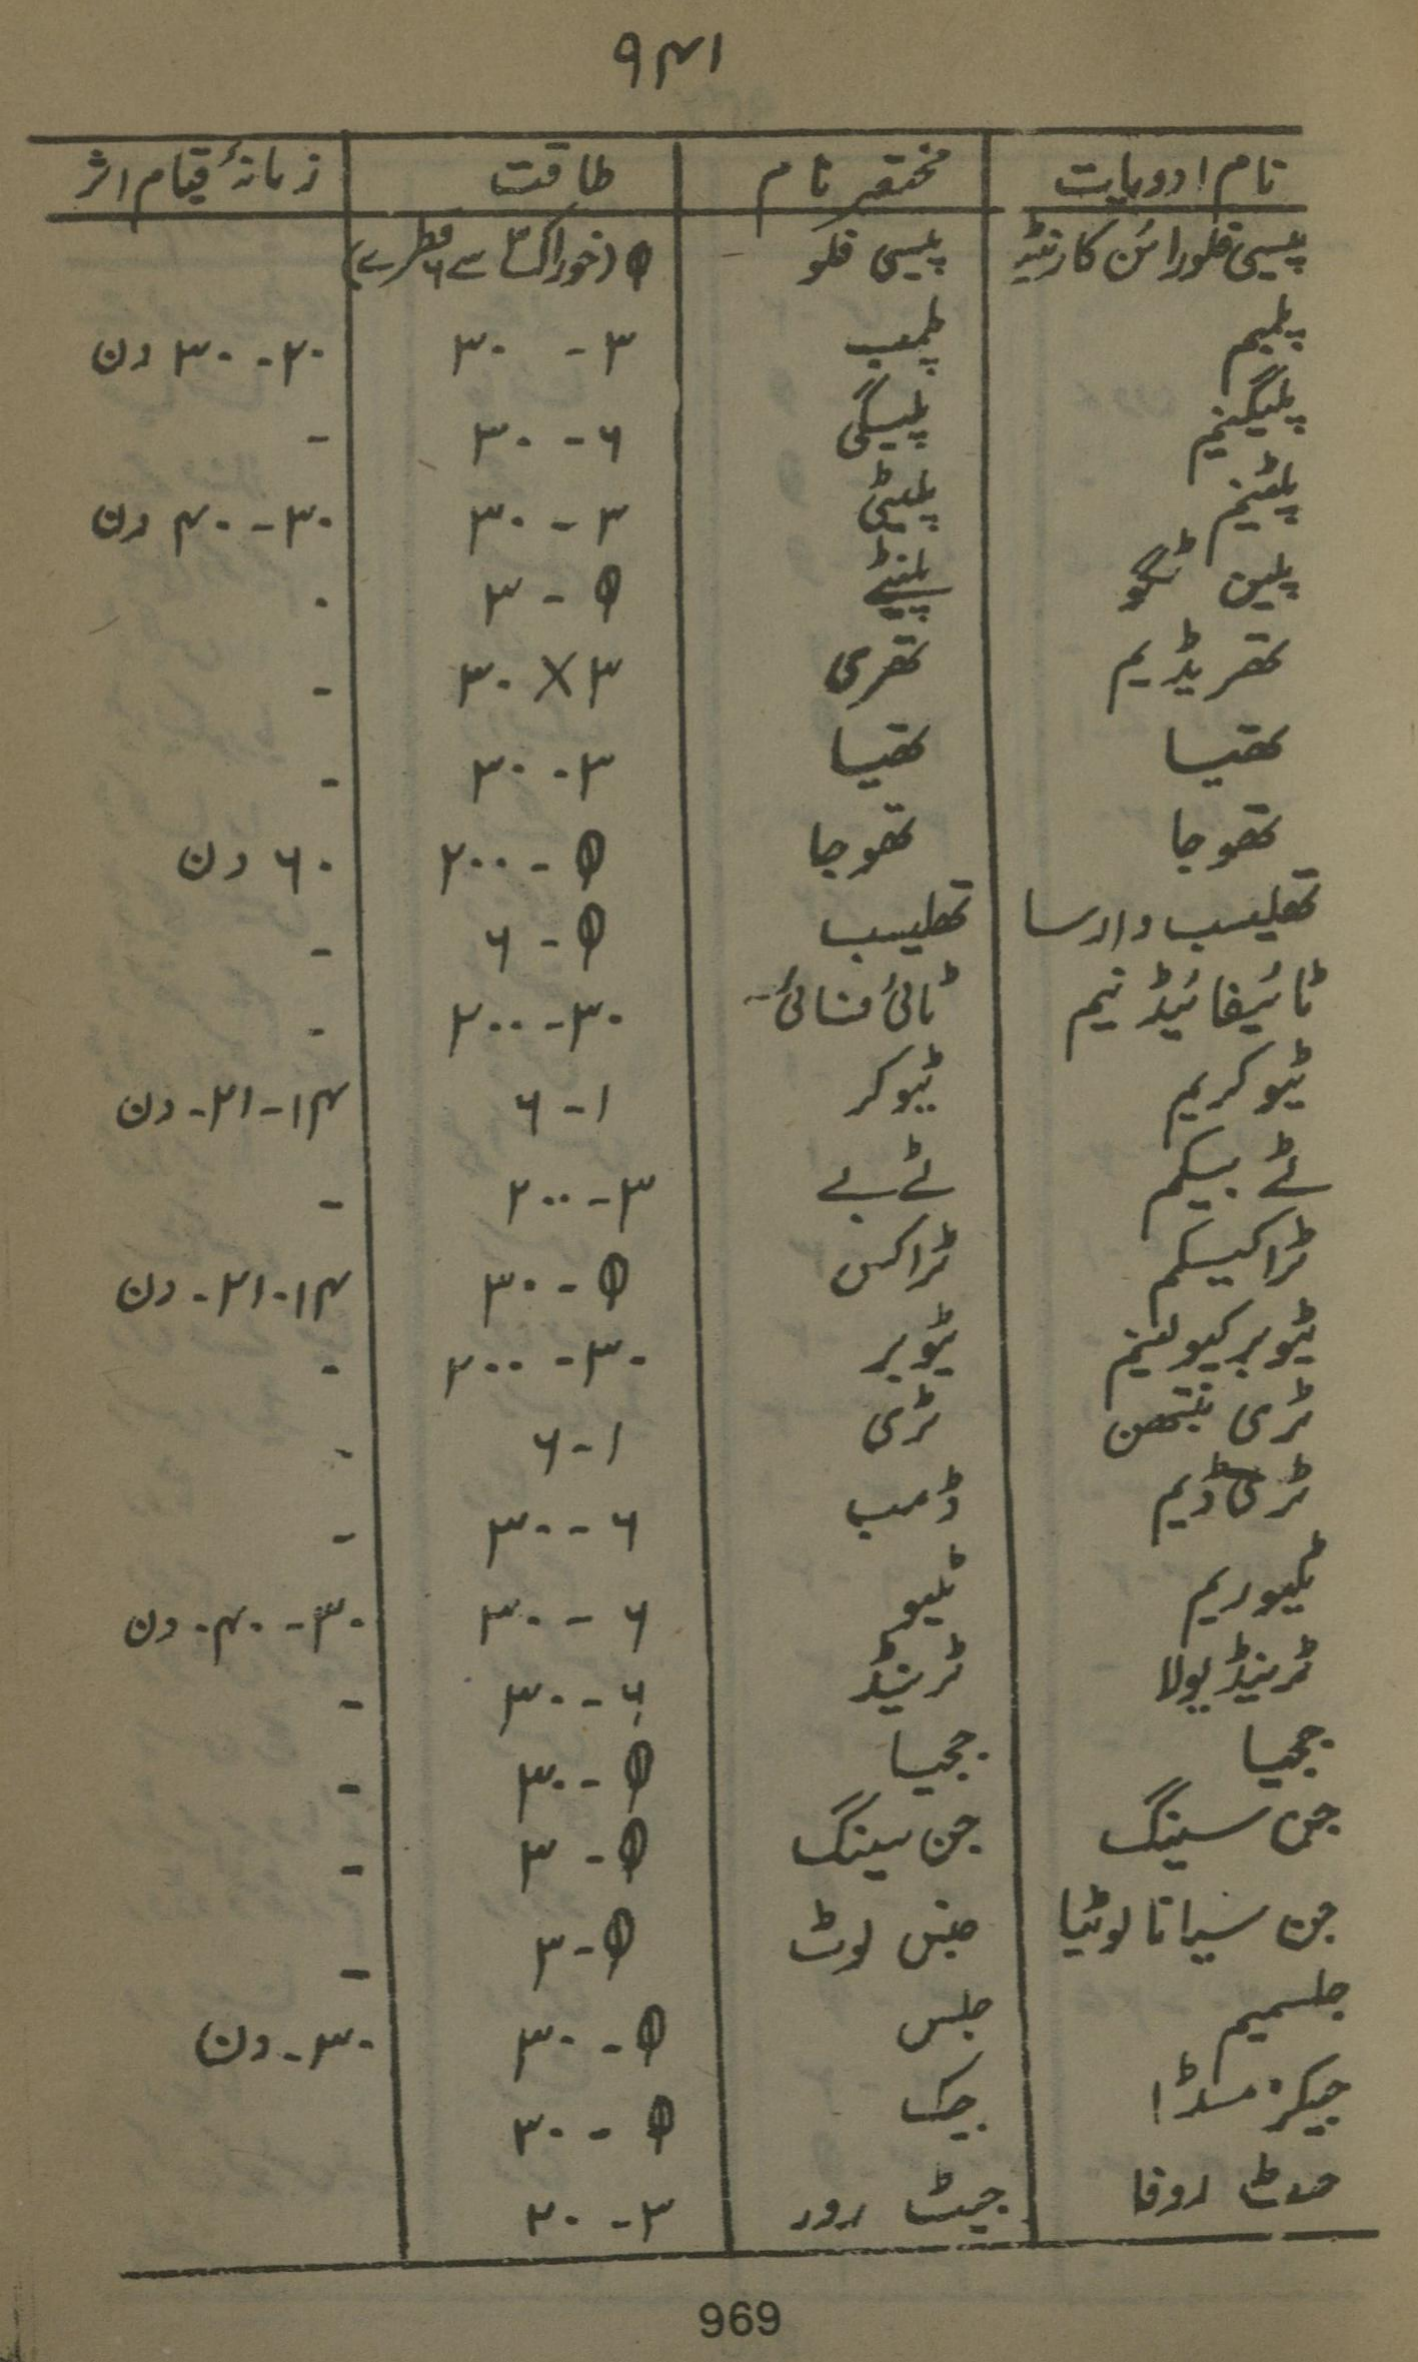 ۹۴۱
نام ادویات | مختصر نام | طاقت | زمانۂ قیام اثر
پیسی فلورا ئن کارنیٹہ | پیسی فلو | θ (خوراک ۳ سے ۶ قطرے)
پلمبم | پلمب | ۳ - ۳۰ | ۲۰ - ۳۰ دن
پلیگنیم | پلیگی | ۶ - ۳۰ | -
پلٹینم | پلیٹی | ۳ - ۳۰ | ۳۰ - ۴۰ دن
پلین ٹگو | پلنٹے | θ - ۳ | -
تھریڈیم | تھری | ۳ X ۳۰ | -
تھیسا | تھیسا | ۳ - ۳۰ | -
تھوجا | تھوجا | θ - ۲۰۰ | ۶۰ دن
تھلیسب دارسا | تھلیسب | θ - ۶ | -
ٹائیفائیڈ نیم | ٹائ فائ | ۳۰ - ۲۰۰ | -
ٹیوکریم | ٹیوکر | ۱ - ۶ | ۱۴ - ۲۱ - دن
ٹے بیکم | ٹے بے | ۳ - ۲۰۰ | -
ٹراکسیکم | ٹراکس | θ - ۳۰ | ۱۴ - ۲۱ - دن
ٹیوبرکیولینم | ٹیوبر | ۳۰ - ۲۰۰ | -
ٹری نتھن | ٹری | ۱ - ۶ | -
ٹری ڈیم | ڈمب | ۶ - ۳۰ | -
ٹلیوریم | ٹلیو | ۶ - ۳۰ | ۳۰ - ۴۰ دن
ٹرینڈیولا | ٹرینڈ | ۶ - ۳۰ | -
ججیا | ججیسا | θ - ۳۰ | -
جن سینگ | جن سینگ | θ - ۳ | -
جن سیانا لوٹیا | جنس لوٹ | θ - ۳ | -
جلسمیم | جلس | θ - ۳۰ | ۳۰ - دن
جیکرنڈا | جیک | θ - ۳۰
جٹ روفا | جیٹ رور | ۳ - ۳۰
969